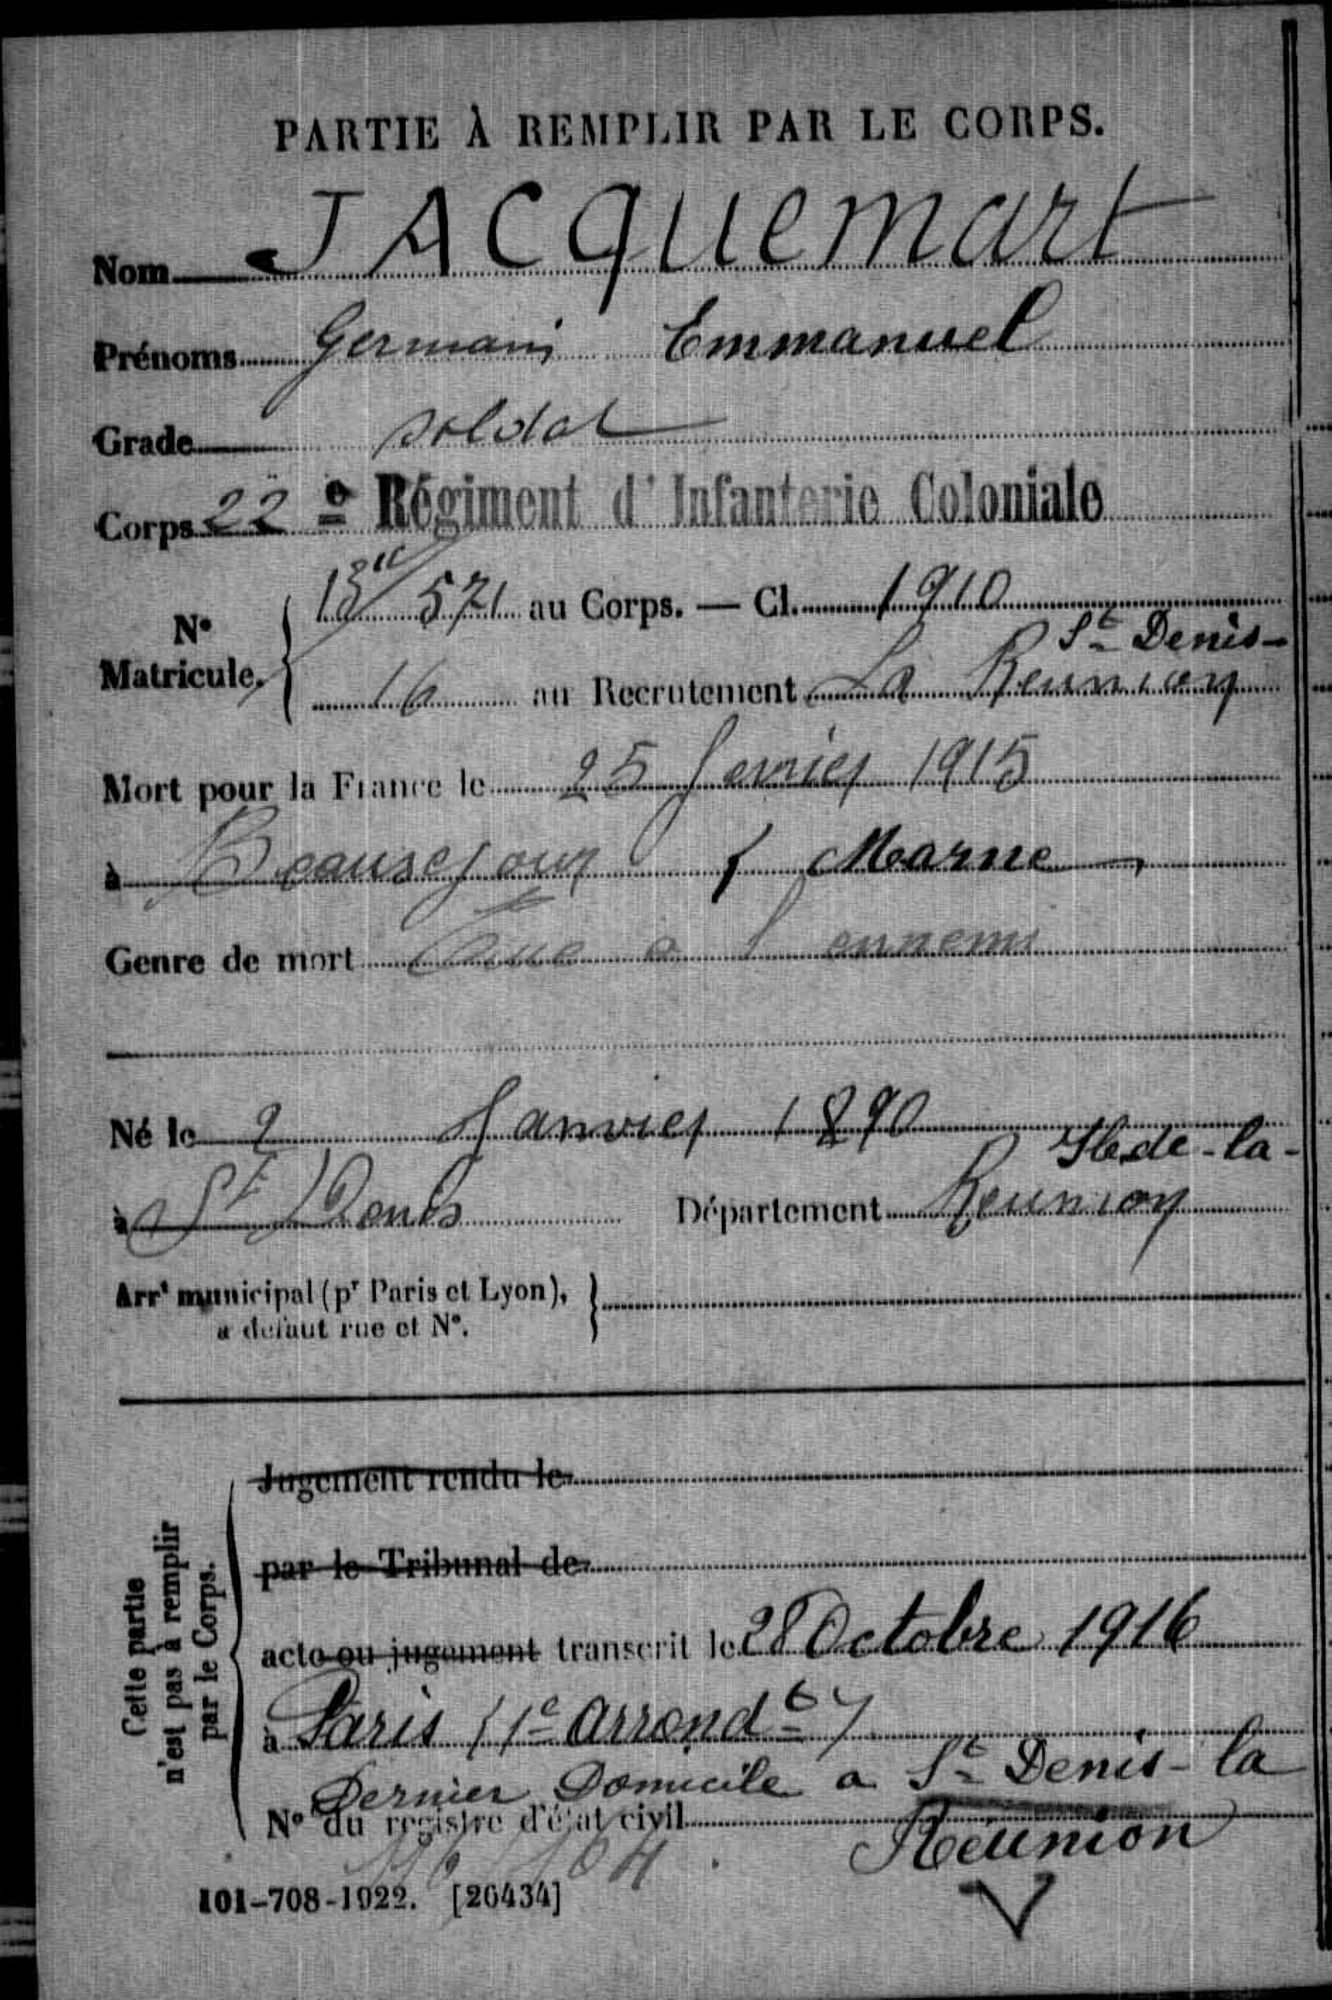 PARTIE À REMPLIR PAR LE CORPS.
Nom JACquemart
Prénoms Germain Emmanuel
Grade soldat
Corps 22e Régiment d'Infanterie Coloniale
N° Matricule. 571 au Corps. — Cl. 1910
St Denis-
16 au Recrutement La Reunion
Mort pour la France le 25 fevrier 1915
à Beausejour ( Marne
Genre de mort Tué a l'ennemi
Né le 2 Janvier 1890
Ile de-la-
à St Denis Département Reunion
Arrt municipal (pr Paris et Lyon),
a défaut rue et N°.
Cette partie
n'est pas à remplir
par le Corps.
Jugement rendu le
par le Tribunal de
acte ou jugement transcrit le 28 Octobre 1916
à Paris (1e Arrondt)
Dernier Domicile a St Denis-la
N° du registre d'état civil
Reunion
101-708-1922. [26434]